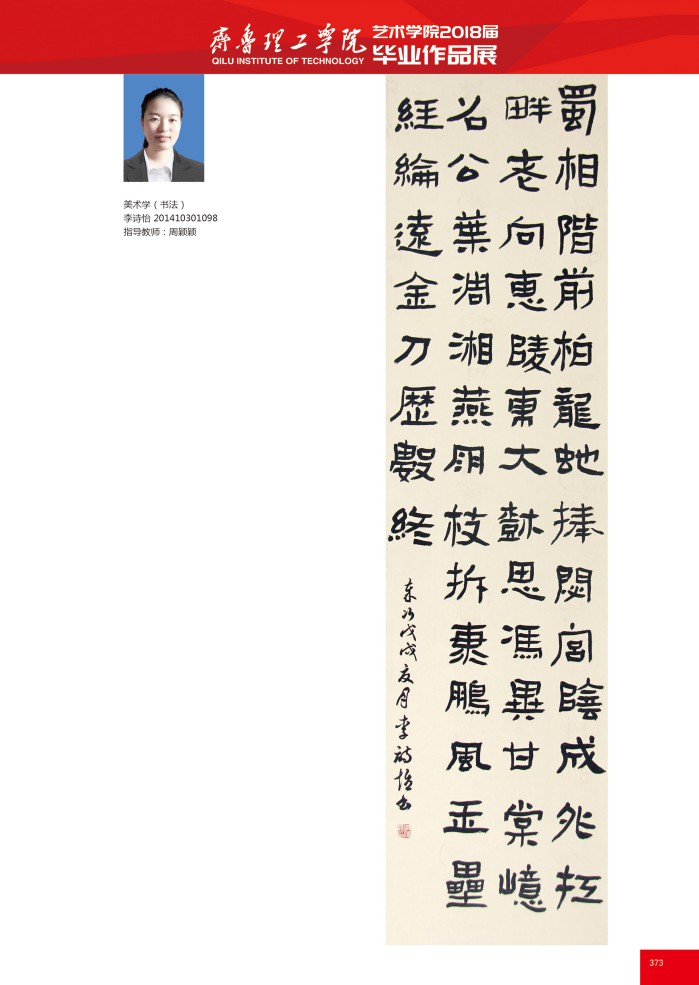 齊魯理工學院
QILU INSTITUTE OF TECHNOLOGY
艺术学院2018届
毕业作品展
美术学（书法）
李诗怡 201410301098
指导教师：周颖颖
蜀相階前柏龍虵捧閟宮陰成外江
畔老向惠陵東大樹思馮異甘棠憶
名公葉凋湘燕雨枝拆東鵬風玉壘
經綸遠金刀歷數終
次戊戌夏月李詩怡書
373